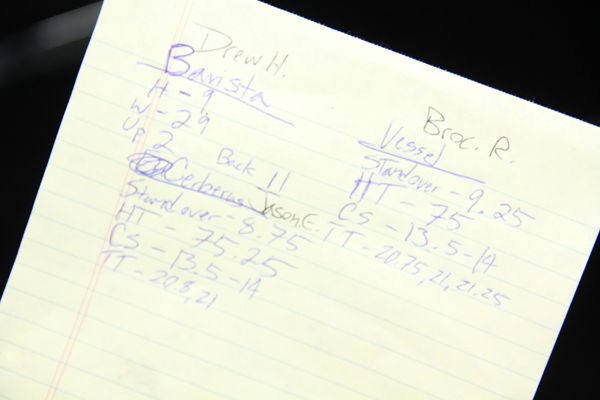 Drew H.
Barista
H - 9
W - 29
UP 2
Back 11
Cerberus Jason E.
Standover - 8.75
HT - 75.25
CS - 13.5-14
TT - 20.8, 21
Broc. R.
Vessel
Standover - 9.25
HT - 75
CS - 13.5-14
TT - 20.75, 21, 21.25